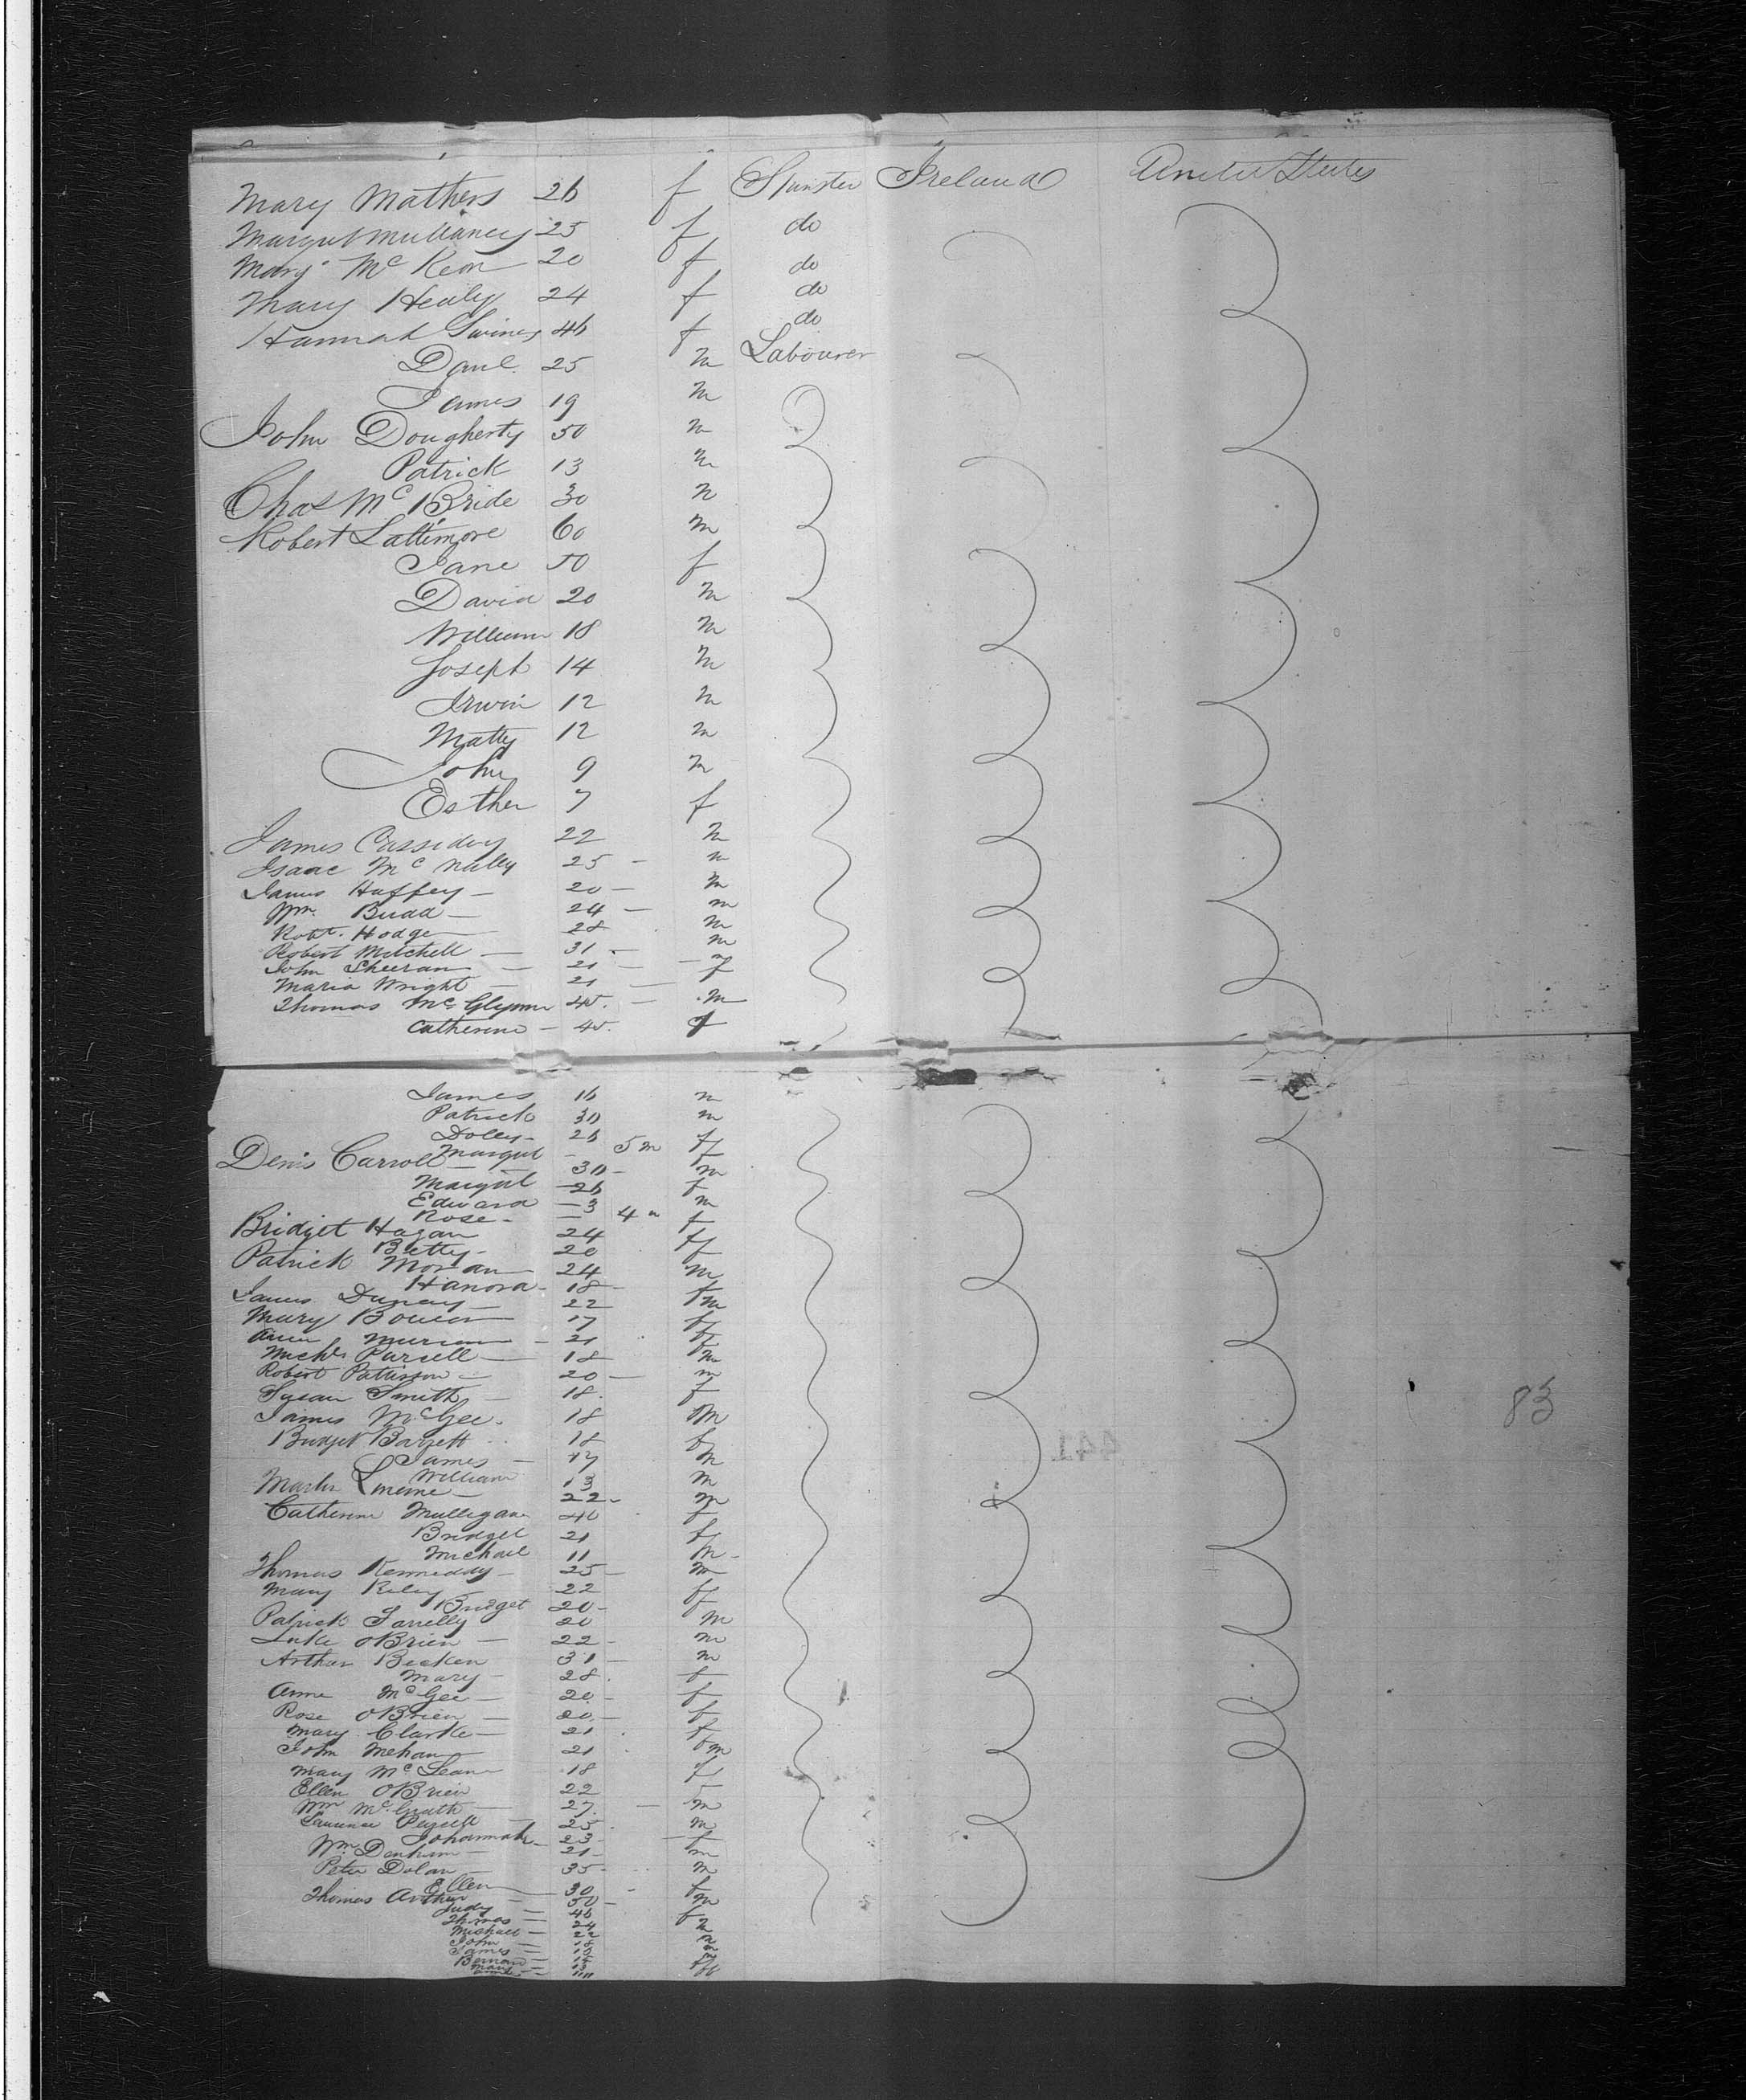 Mary Mathers 26 f Spinster Ireland United States
Margret Mullaney 25 f do
Mary Mc Keon 20 f do
Mary Healy 24 f do
Hannah Swiney 46 f do
Danl. 25 m Labourer
James 19 m
John Dougherty 50 m
Patrick 13 m
Chas Mc Bride 30 m
Robert Lattimore 60 m
Jane 50 f
David 20 m
William 18 m
Joseph 14 m
Irwin 12 m
Matty 12 m
John 9 m
Esther 7 f
James Cassidy 22 m
Isaac Mc Nally 25 - m
James Haffey - 20 - m
Wm. Budd - 24 - m
Robt. Hodge 28 m
Robert Mitchell - 31 - m
John Sheeran - 21 -
Maria Wright - 21 - f
Thomas Mc Glynn 45. - m
Catherine - 45. f
James 16 m
Patrick 30 m
Dolly - 26 f
Margret - 5 m f
Denis Carroll - 30 - m
Margret - 26 f
Edward - 3 m
Rose - - 4 " f
Bridget Hagan 24 f
Betty - 20 f
Patrick Moran 24 m
Hanora - 18 - f
James 22 m
Mary 17 f
Ann - 21 f
Michl. Pursell - 18 m
Robert Pattisson - 20 - m
Susan Smith - 18. f
James McGee. 18 m
Bridget 18 f
James - 17 m
William 13 m
Martin 22 - m
Catherine Mulligan 40 f
Bridget 21 f
Michael 11 m -
Thomas Kenneddy - 25 - m
Mary Riley 22 f
Bridget 20 - f
Patrick Farrelly 20 m
Luke OBrien - 22 - m
Arthur 31 - m
Mary - 28. f
Anne McGee - 20 - f
Rose OBrien - 20. - f
Mary Clarke - 21 f
John Mehan 21 m
Mary McLean 18 f
Ellen OBrien 22 f
Wm McGrath - 27. - m
Laurence 25. m
Johannah - 23 - f
Wm. Denham - 21 - m
Peter Dolan - 35 - m
Ellen 30 - f
Thomas Arthur - 50 - m
Judy - 46 f
Thomas - 24 m
Michael - 22 m
John - 18 m
James -
Bernard -
Mary -
441
83